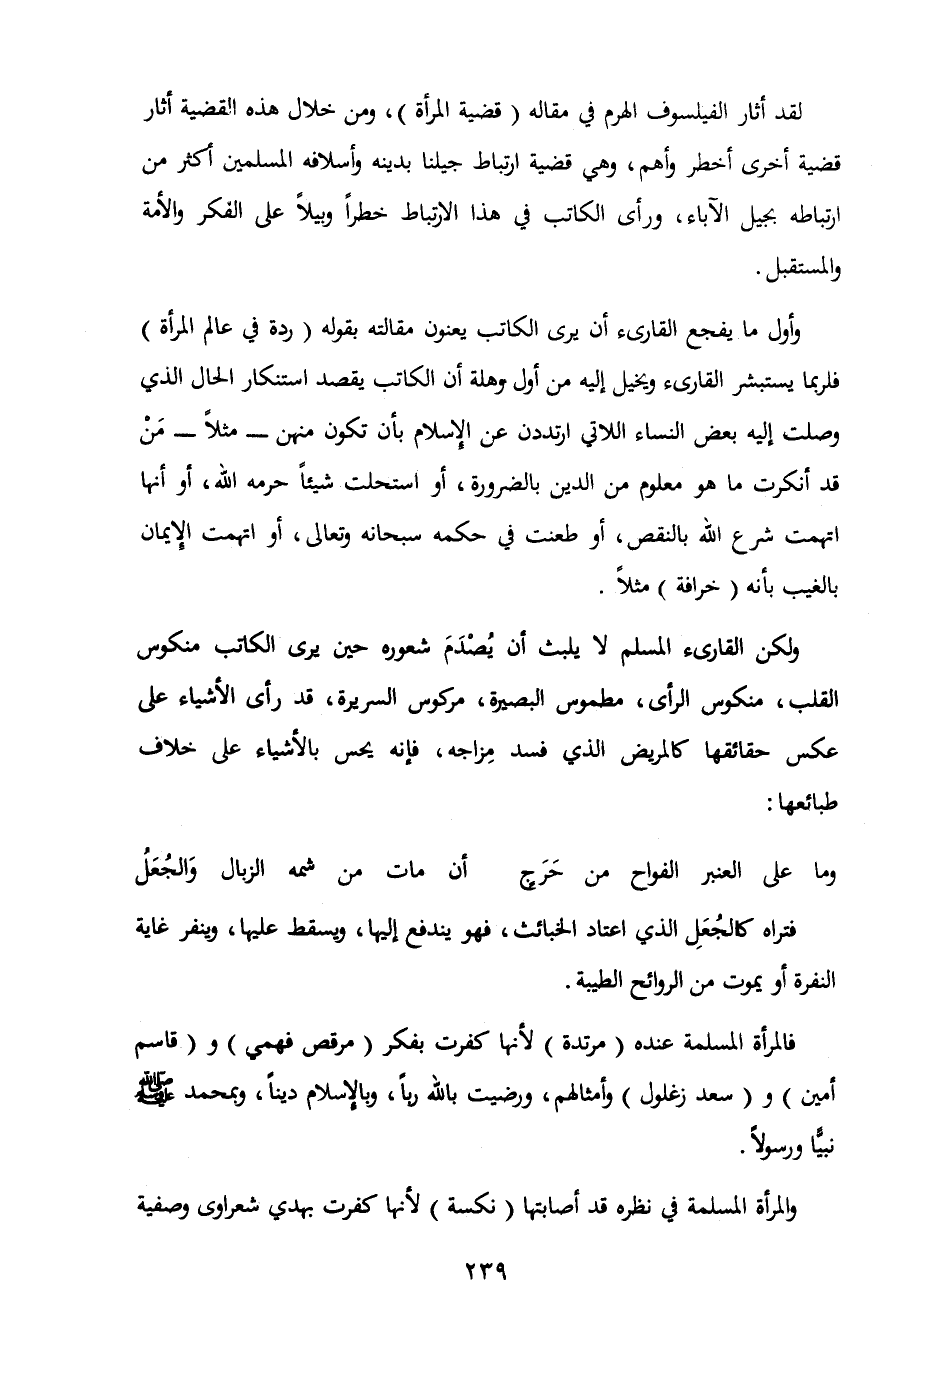 لقد أثار الفيلسوف الهرم في مقاله ( قضية المرأة )، ومن خلال هذه القضية أثار
قضية أخرى أخطر وأهم، وهي قضية ارتباط جيلنا بدينه وأسلافه المسلمين أكثر من
ارتباطه بجيل الآباء، ورأى الكاتب في هذا الارتباط خطراً وبيلاً على الفكر والأمة
والمستقبل.
وأول ما يفجع القارىء أن يرى الكاتب يعنون مقالته بقوله ( ردة في عالم المرأة )
فلربما يستبشر القارىء ويخيل إليه من أول وهلة أن الكاتب يقصد استنكار الحال الذي
وصلت إليه بعض النساء اللاتي ارتددن عن الإسلام بأن تكون منهن ــ مثلاً ــ مَنْ
قد أنكرت ما هو معلوم من الدين بالضرورة، أو استحلت شيئاً حرمه الله، أو أنها
اتهمت شرع الله بالنقص، أو طعنت في حكمه سبحانه وتعالى، أو اتهمت الإيمان
بالغيب بأنه ( خرافة ) مثلاً .
ولكن القارىء المسلم لا يلبث أن يُصْدَمَ شعوره حين يرى الكاتب منكوس
القلب، منكوس الرأى، مطموس البصيرة، مركوس السريرة، قد رأى الأشياء على
عكس حقائقها كالمريض الذي فسد مِزاجه، فإنه يحس بالأشياء على خلاف
طبائعها:
وما على العنبر الفواح من حَرَجٍ أن مات من شمه الزبال وَالجُعَلُ
فتراه كالجُعَلِ الذي اعتاد الخبائث، فهو يندفع إليها، ويسقط عليها، وينفر غاية
النفرة أو يموت من الروائح الطيبة.
فالمرأة المسلمة عنده ( مرتدة ) لأنها كفرت بفكر ( مرقص فهمي ) و ( قاسم
أمين ) و ( سعد زغلول ) وأمثالهم، ورضيت بالله رباً، وبالإسلام ديناً، وبمحمد ﷺ
نبيًّا ورسولاً.
والمرأة المسلمة في نظره قد أصابتها ( نكسة ) لأنها كفرت بهدي شعراوى وصفية
٢٣٩